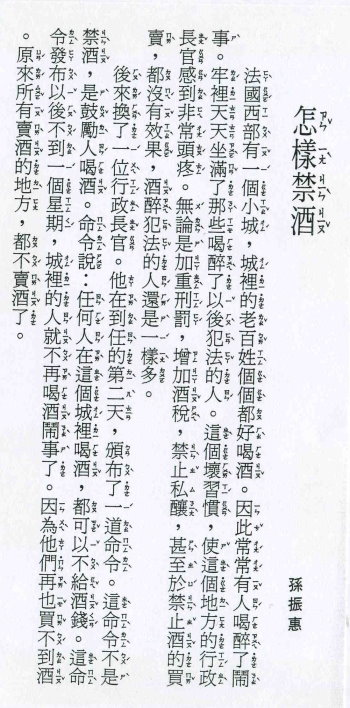 怎樣禁酒
孫振惠
法國西部有一個小城，城裡的老百姓個個都好喝酒。因此常常有人喝醉了鬧
事。牢裡天天坐滿了那些喝醉了以後犯法的人。這個壞習慣，使這個地方的行政
長官感到非常頭疼。無論是加重刑罰，增加酒稅，禁止私釀，甚至於禁止酒的買
賣，都沒有效果，酒醉犯法的人還是一樣多。
後來換了一位行政長官。他在到任的第二天，頒布了一道命令。這命令不是
禁酒，是鼓勵人喝酒。命令說：任何人在這個城裡喝酒，都可以不給酒錢。這命
令發布以後不到一個星期，城裡的人就不再喝酒鬧事了。因為他們再也買不到酒
。原來所有賣酒的地方，都不賣酒了。